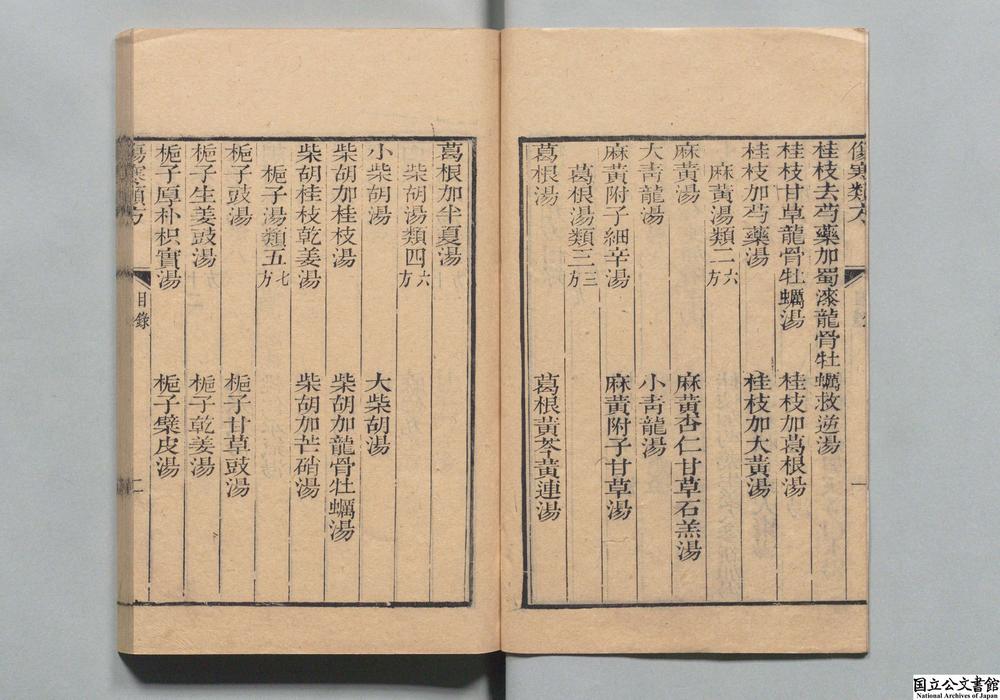 傷寒類方
桂枝去芍藥加蜀漆龍骨牡蠣救逆湯
桂枝甘草龍骨牡蠣湯 桂枝加葛根湯
桂枝加芍藥湯 桂枝加大黃湯
麻黃湯類二 六方
麻黃湯 麻黃杏仁甘草石羔湯
大青龍湯 小青龍湯
麻黃附子細辛湯 麻黃附子甘草湯
葛根湯類三 三方
葛根湯 葛根黃芩黃連湯
一
葛根加半夏湯
柴胡湯類四 六方
小柴胡湯 大柴胡湯
柴胡加桂枝湯 柴胡加龍骨牡蠣湯
柴胡桂枝乾姜湯 柴胡加芒硝湯
梔子湯類五 七方
梔子豉湯 梔子甘草豉湯
梔子生姜豉湯 梔子乾姜湯
梔子厚朴枳實湯 梔子檗皮湯
傷寒類方 目錄 二
国立公文書館
National Archives of Japan